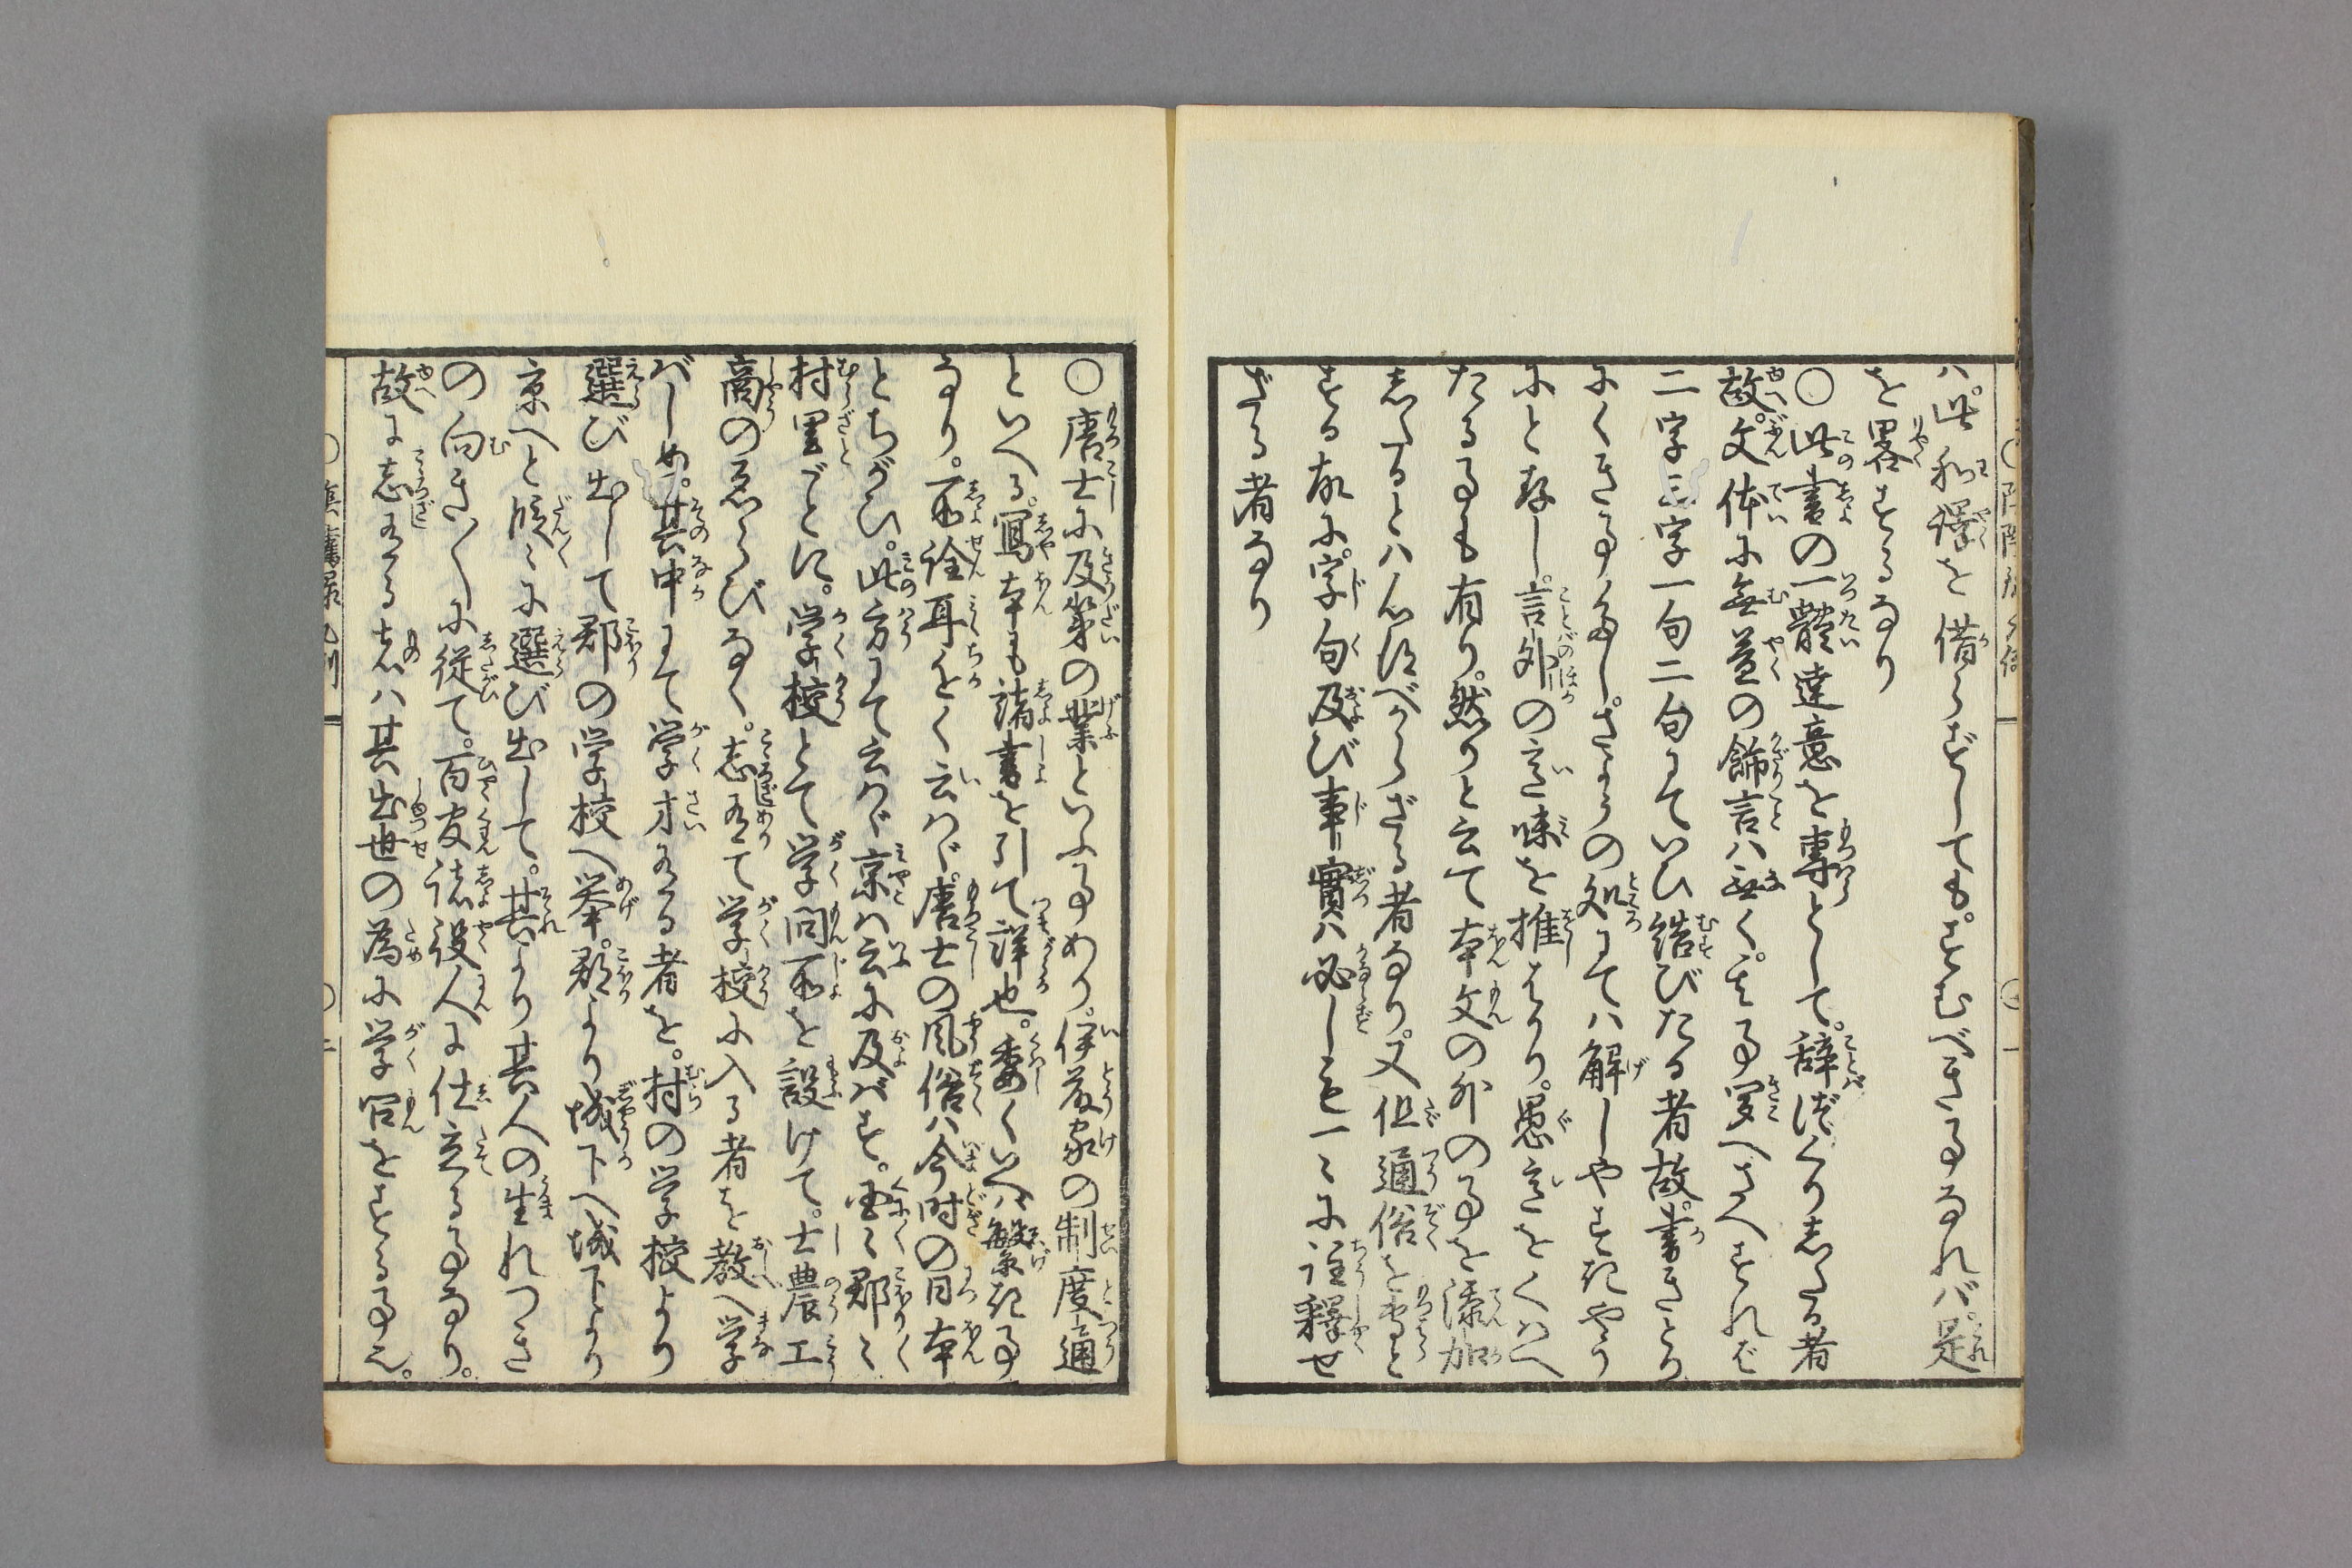 ハ。此和譯を借らずしても。すむべきことなれバ。是
を畧するなり
〇此書の一體達意を專として。辞づくりしたる者
故。文体に無益の飾言ハ無く。其こと聞へさへすれバ
二字三字一句二句にていひ結びたる者故。書きとり
にくきこと多し。さやうの処にてハ解しやすきやう
にと存し。言外の意味を推はかり。愚意をくハへ
たることも有り。然りと云て本文の外のことを添加
したるとハ心得べからざる者なり。又但通俗を専と
する故に。字句及び事實ハ必しも一々に註釋せ
ざる者なり
〇唐土に及第の業といふ事あり。伊藤家の制度通
といへる。寫本にも諸書を引て詳也。委くいへバ繁きこと
なり。所詮耳ぢかく云ハヾ。唐土の風俗ハ今時の日本
とちがひ。此方にて云ハヾ京ハ云に及バず。国々郡々
村里ごとに。学校とて学問所を設けて。士農工
商のゑらびなく。志有て学校に入る者を教へ学
バしめ。其中にて学才有る者を。村の学校より
選び出して郡の学校へ挙。郡より城下へ城下より
京へと段々に選び出して。其より其人の生れつき
の向き〳〵に従て。百官諸役人に仕立ることなり。
故に志有る者ハ其出世の為に学問をすること也。